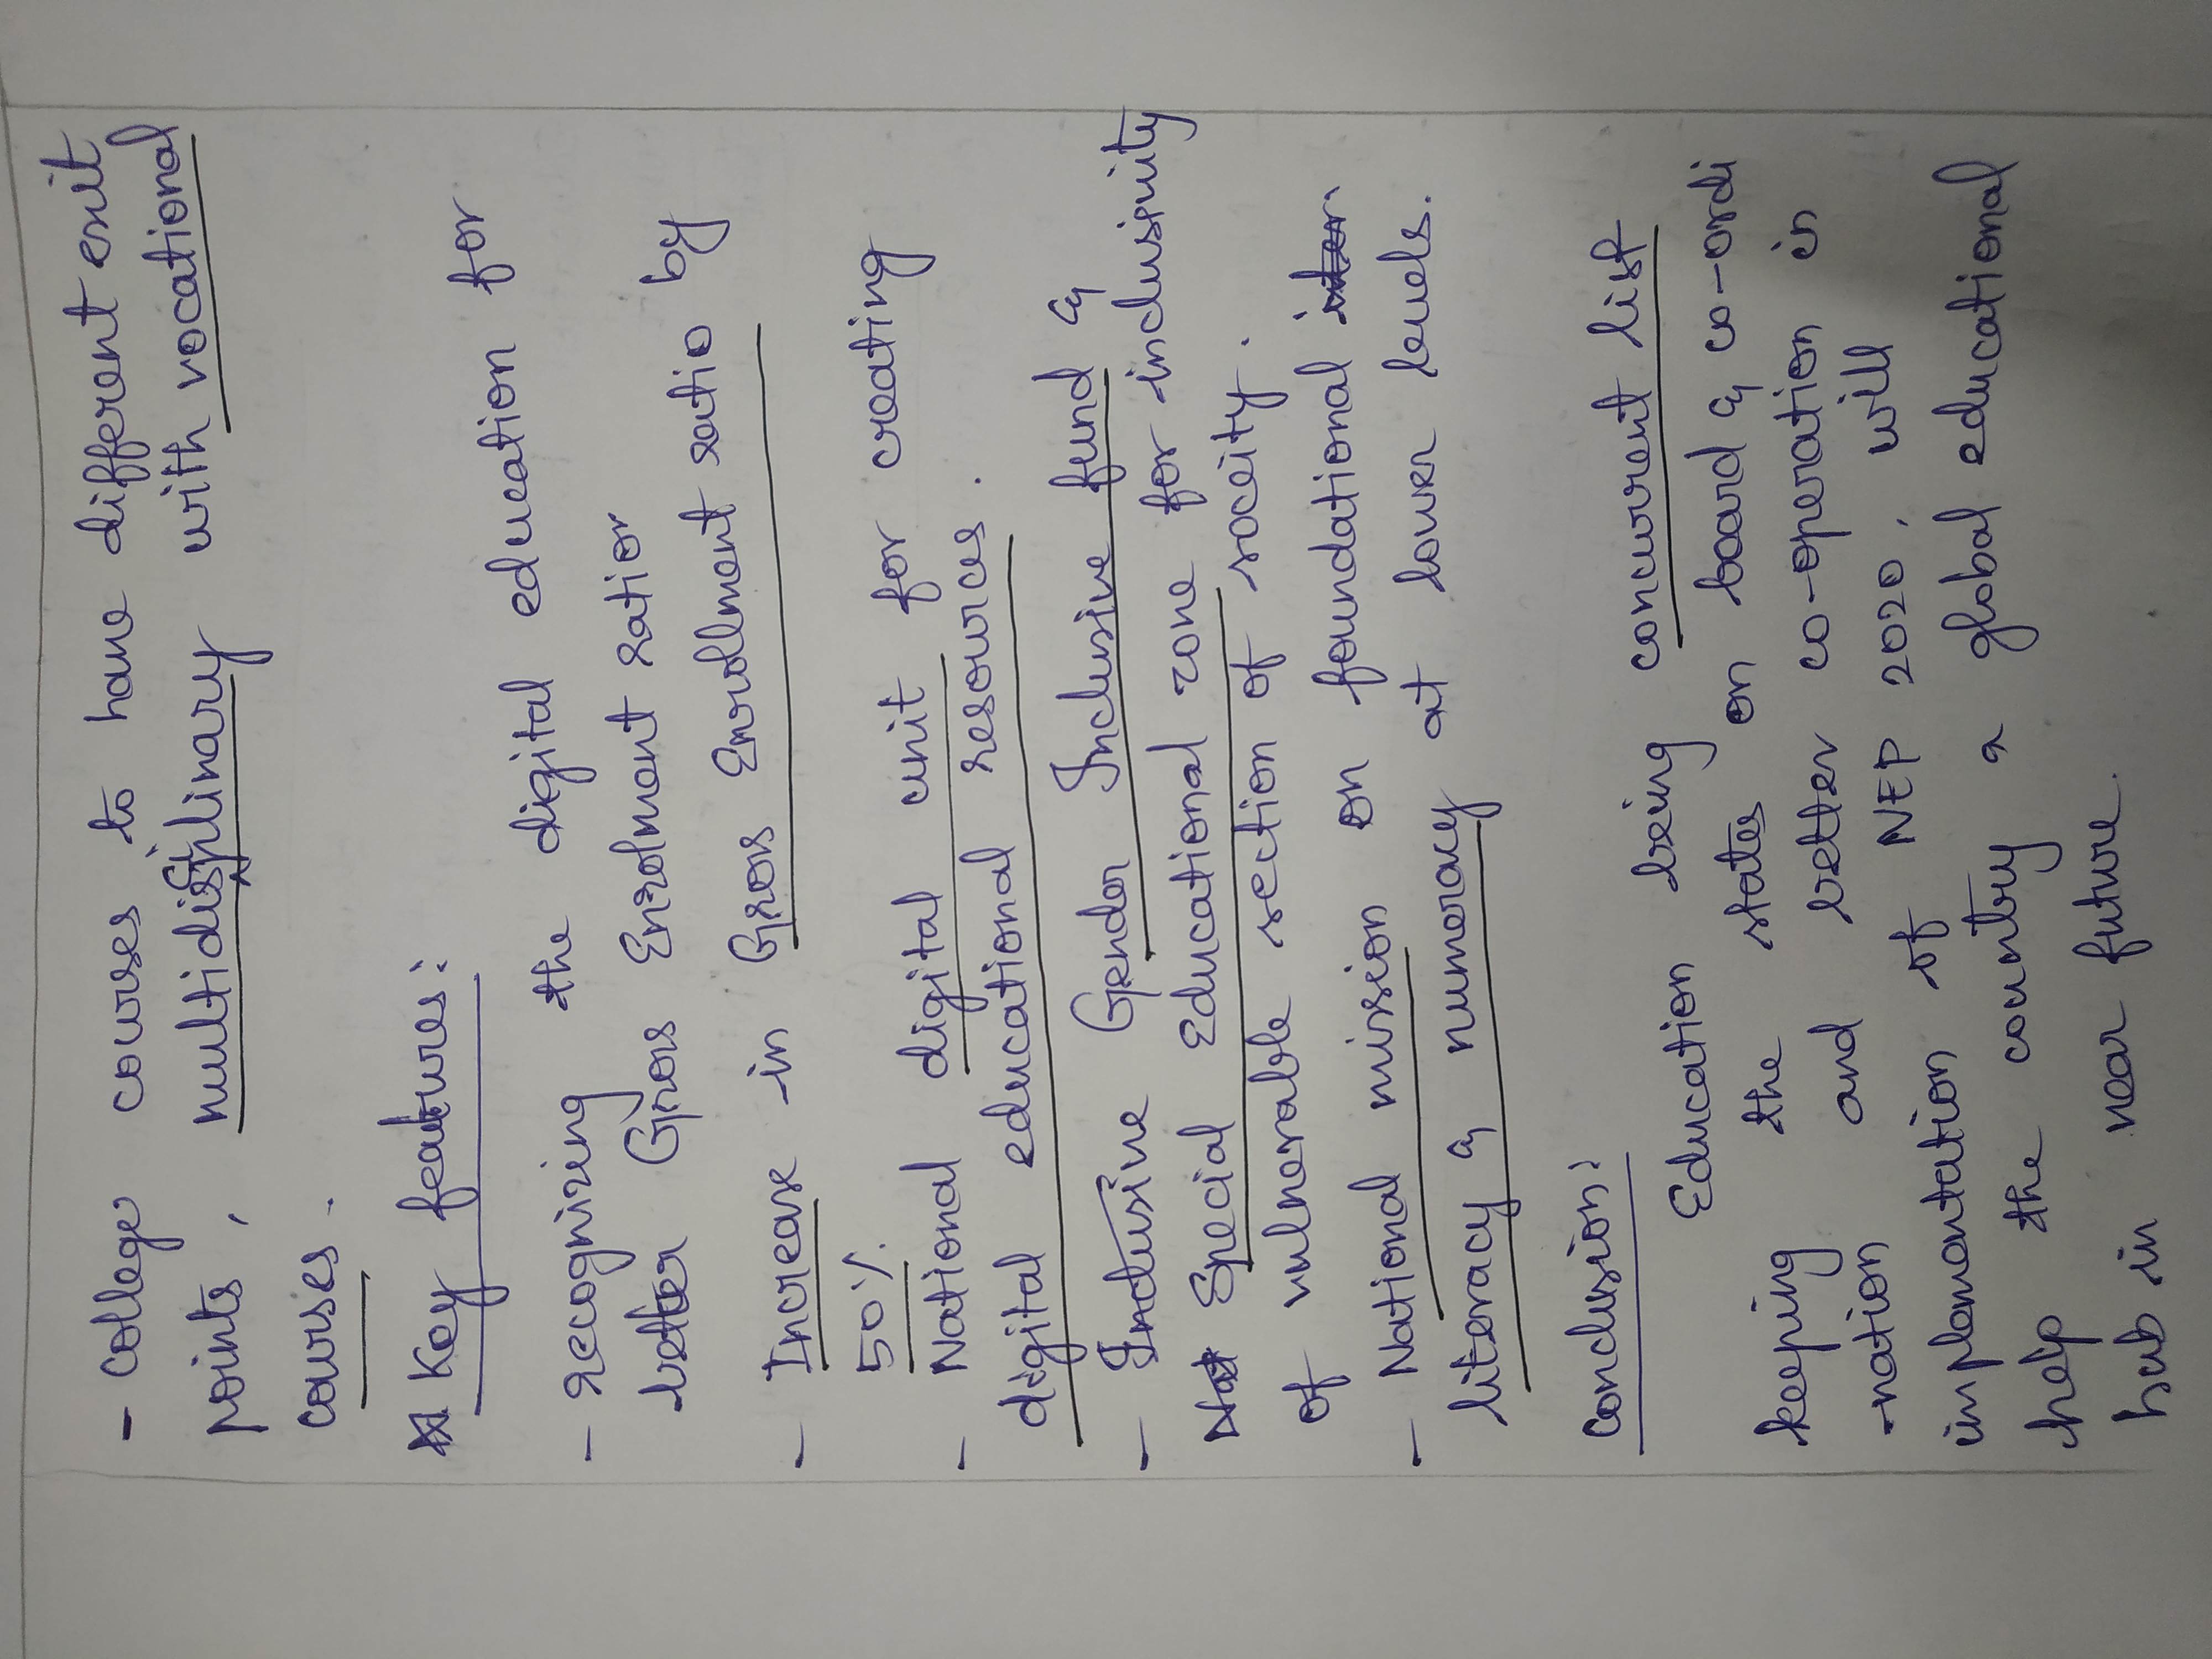 - College courses to have different exit
points, multidisiplinary with vocational
courses.
Key features:
- recognizing the digital education for
better Gross Enrolment ratior
- Increase in Gross Enrollment ratio by
50%.
- National digital unit for creating
digital educational resources.
- Inclusive Gender Inclusive fund &
Special Educational zone for inclusivity
of vulnerable section of soceity.
- National mission on foundational
literacy & numeracy at lower levels.
Conclusion:
Education being concurrent list
keeping the states on board & co-ordi
-nation and better co-operation in
implementation of NEP 2020, will
help the country a global educational
hub in near future.